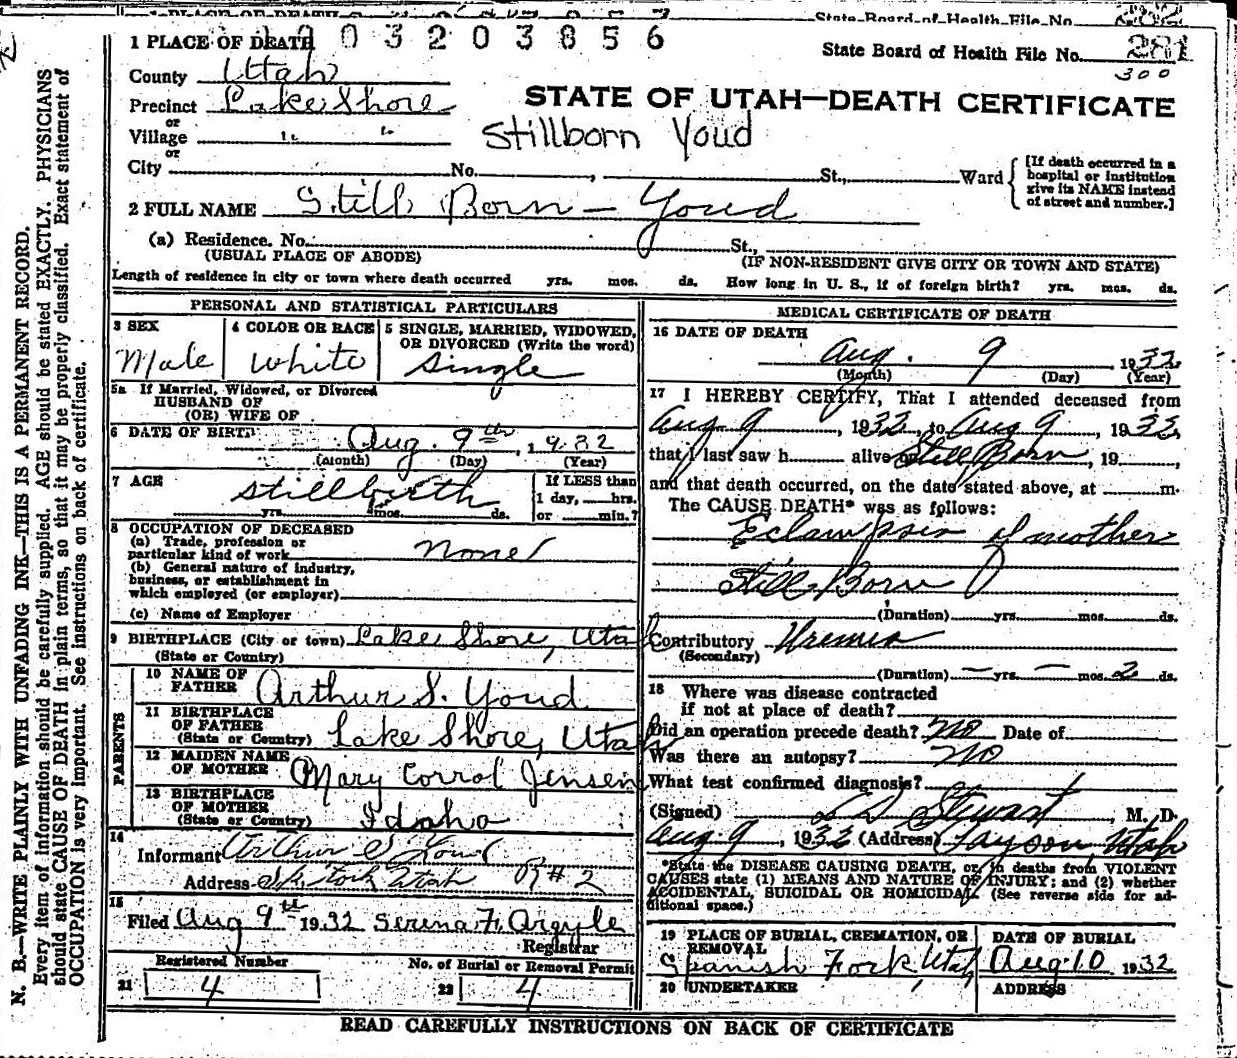 1 PLACE OF DEATH 0 3 2 0 3 8 5 6
State Board of Health File No. 281
300
County Utah
Precinct Lake Shore
or
Village " "
or
STATE OF UTAH—DEATH CERTIFICATE
Stillborn Youd
City No. , St., Ward
[If death occurred in a hospital or institution give its NAME instead of street and number.]
2 FULL NAME Still Born - Youd
(a) Residence. No. St.,
(USUAL PLACE OF ABODE) (IF NON-RESIDENT GIVE CITY OR TOWN AND STATE)
Length of residence in city or town where death occurred yrs. mos. ds. How long in U. S., if of foreign birth? yrs. mos. ds.
PERSONAL AND STATISTICAL PARTICULARS
3 SEX 4 COLOR OR RACE 5 SINGLE, MARRIED, WIDOWED, OR DIVORCED (Write the word)
Male White Single
5a If Married, Widowed, or Divorced
HUSBAND OF
(OR) WIFE OF
6 DATE OF BIRTH Aug. 9th, 1932
(Month) (Day) (Year)
7 AGE stillbirth
yrs. mos. ds.
If LESS than
1 day, hrs.
or min.?
8 OCCUPATION OF DECEASED
(a) Trade, profession or
particular kind of work none
(b) General nature of industry,
business, or establishment in
which employed (or employer)
(c) Name of Employer
9 BIRTHPLACE (City or town) Lake Shore, Utah
(State or Country)
PARENTS
10 NAME OF
FATHER Arthur S. Youd
11 BIRTHPLACE
OF FATHER
(State or Country) Lake Shore, Utah
12 MAIDEN NAME
OF MOTHER Mary Corrol Jensen
13 BIRTHPLACE
OF MOTHER
(State or Country) Idaho
14
Informant Arthur S Youd
Address Sp. Fork Utah R#2
15
Filed Aug 9th 1932 Serena F. Argyle
Registrar
Registered Number No. of Burial or Removal Permit
21 4 22 4
MEDICAL CERTIFICATE OF DEATH
16 DATE OF DEATH
Aug. 9, 1932
(Month) (Day) (Year)
17 I HEREBY CERTIFY, That I attended deceased from
Aug 9, 1932, to Aug 9, 1932,
that I last saw h alive on Still Born, 19 ,
and that death occurred, on the date stated above, at m.
The CAUSE DEATH* was as follows:
Eclampsia of mother
Still Born
(Duration) yrs. mos. ds.
Contributory Uremia
(Secondary)
(Duration) — yrs. — mos. 2 ds.
18 Where was disease contracted
if not at place of death?
Did an operation precede death? No Date of
Was there an autopsy? No
What test confirmed diagnosis?
(Signed) L D Stewart, M. D.
Aug. 9, 1932 (Address) Payson, Utah
*State the DISEASE CAUSING DEATH, or in deaths from VIOLENT
CAUSES state (1) MEANS AND NATURE OF INJURY; and (2) whether
ACCIDENTAL, SUICIDAL OR HOMICIDAL. (See reverse side for ad-
ditional space.)
19 PLACE OF BURIAL, CREMATION, OR REMOVAL DATE OF BURIAL
Spanish Fork, Utah Aug. 10 1932
20 UNDERTAKER ADDRESS
READ CAREFULLY INSTRUCTIONS ON BACK OF CERTIFICATE
N. B.—WRITE PLAINLY WITH UNFADING INK—THIS IS A PERMANENT RECORD.
Every item of information should be carefully supplied. AGE should be stated EXACTLY. PHYSICIANS
should state CAUSE OF DEATH in plain terms, so that it may be properly classified. Exact statement of
OCCUPATION is very important. See instructions on back of certificate.